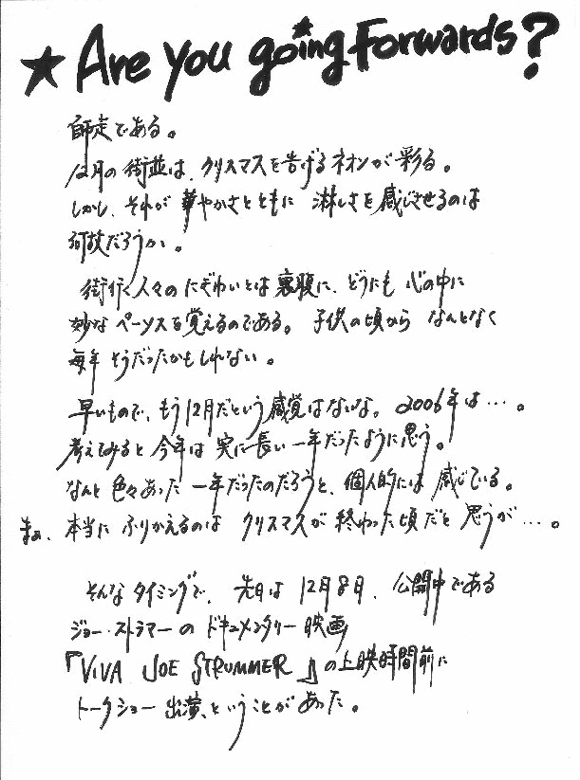 ★ Are you going Forwards?
師走である。
12月の街並は、クリスマスを告げるネオンが彩る。
しかし、それが華やかさとともに 淋しさを感じさせるのは
何故だろうか。
街行く人々のにぎわいとは裏腹に、どうにも 心の中に
妙なペーソスを覚えるのである。子供の頃から なんとなく
毎年 そうだったかもしれない。
早いもので、もう12月だという感覚はないな。2006年は…。
考えてみると今年は 実に長い一年だったように思う。
なんと 色々あった 一年だったのだろうと、個人的には 感じている。
まぁ、本当に ふりかえるのは クリスマスが 終わった頃だと 思うが…。
そんなタイミングで、先日は 12月8日、公開中である
ジョー・ストラマーの ドキュメンタリー映画
『VIVA JOE STRUMMER』の上映時間前に
トークショー 出演、ということがあった。